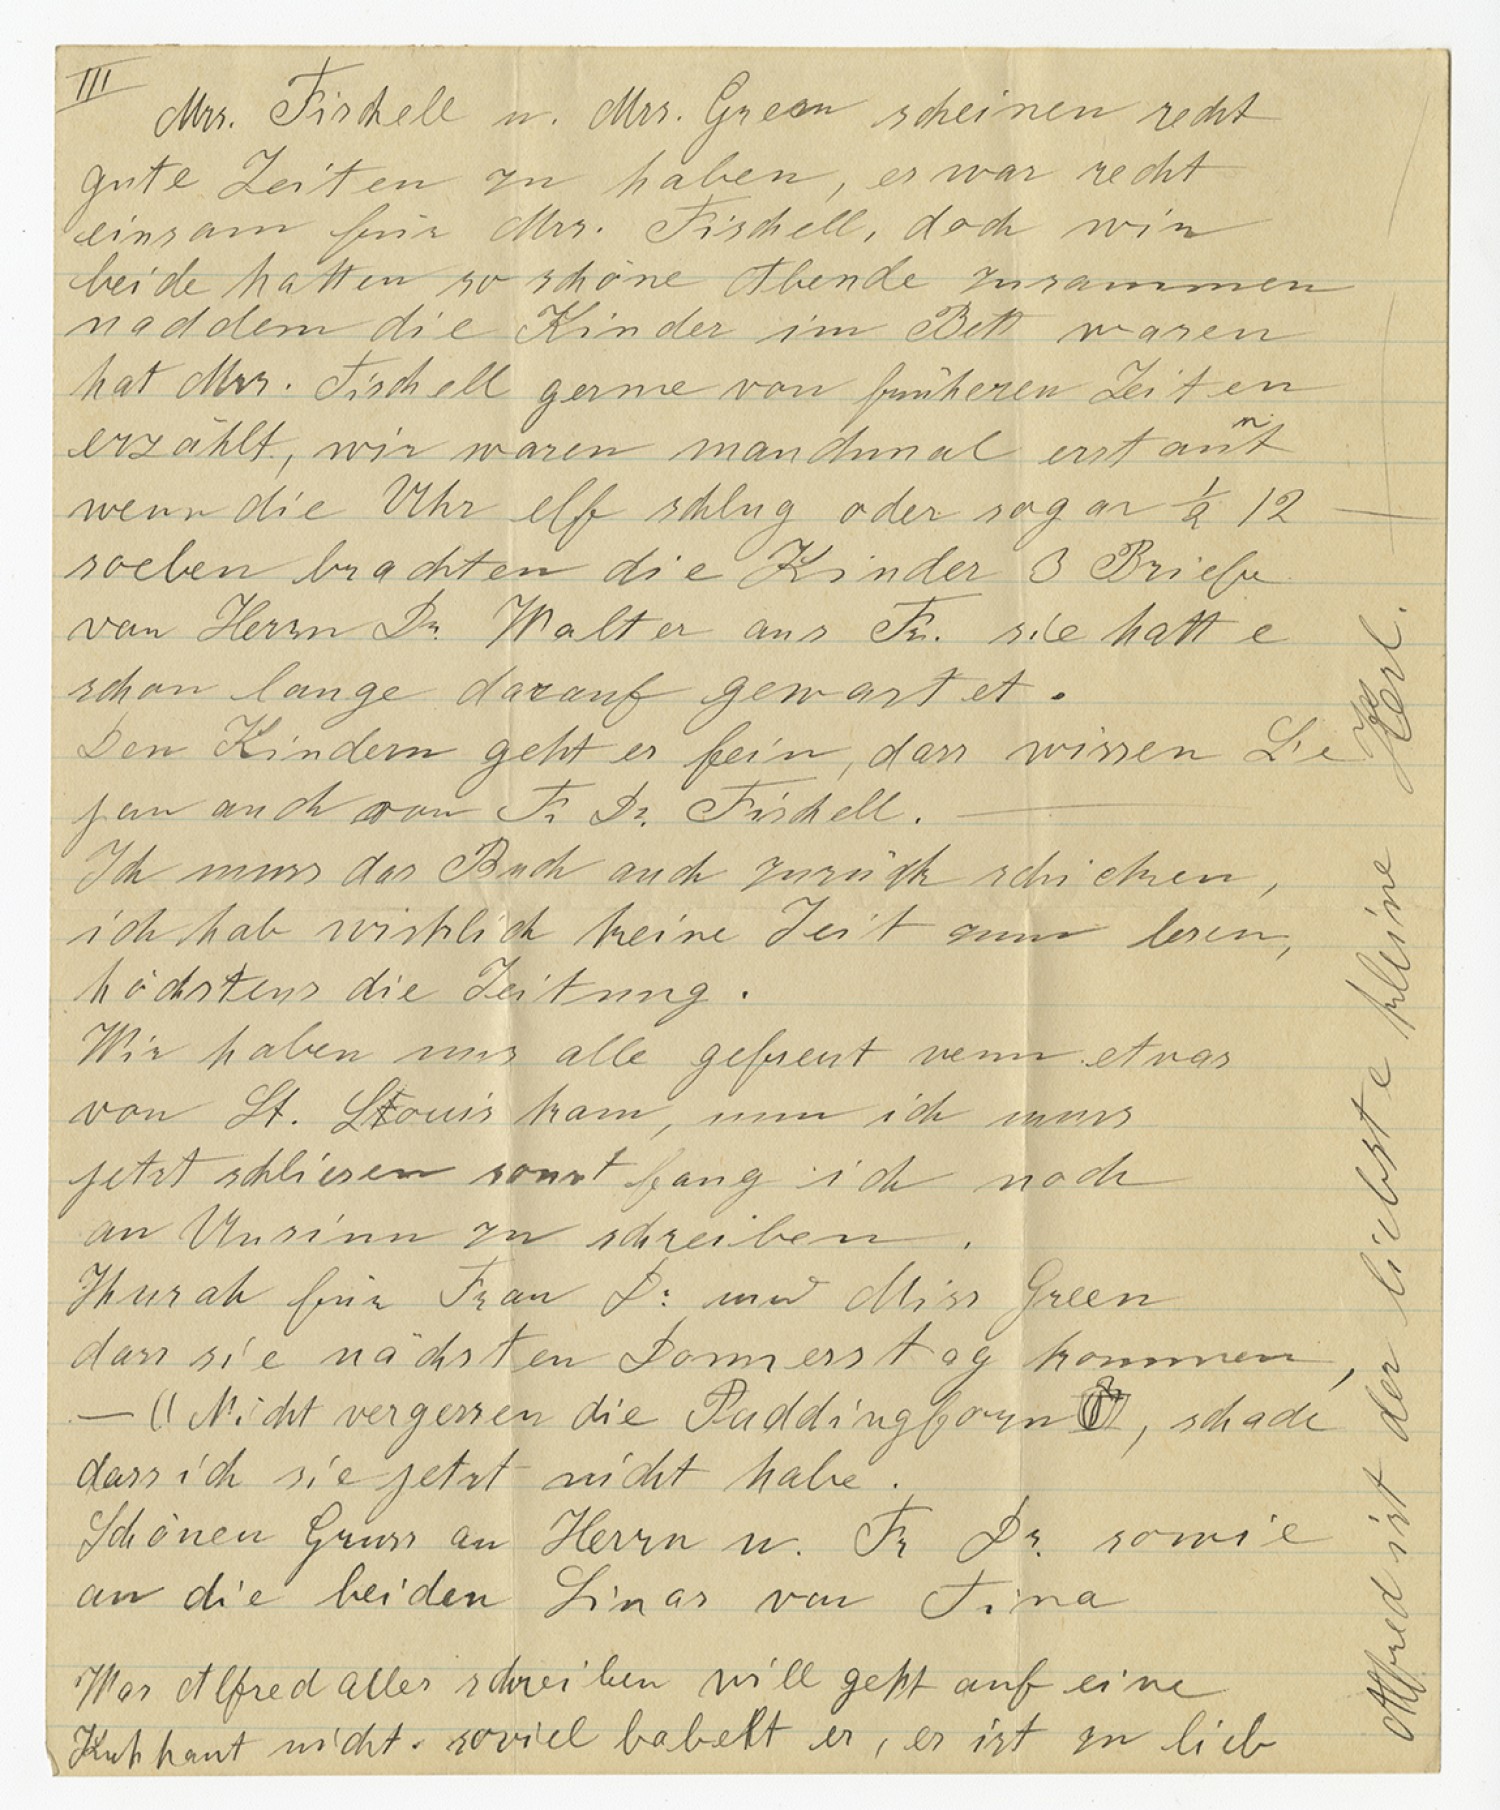 III
Mrs. Fischell u. Mrs. Green scheinen recht
gute Zeiten zu haben, es war recht
einsam für Mrs. Fischell, doch wir
beide hatten so schöne Abende zusammen
nachdem die Kinder im Bett waren
hat Mrs. Fischell gerne von früheren Zeiten
erzählt, wir waren manchmal erstaunt
wenn die Uhr elf schlug oder sogar ½ 12
soeben brachten die Kinder 3 Briefe
von Herrn Dr. Walter aus Fr. sie hatte
schon lange darauf gewartet.
Den Kindern geht es fein, dass wissen Sie
ja auch von Fr Dr. Fischell. —
Ich muss das Buch auch zurück schicken,
ich hab wirklich keine Zeit zum lesen,
höchstens die Zeitung.
Wir haben uns alle gefreut wenn etwas
von St. Louis kam, nun ich muss
jetzt schliesen sonst fang ich noch
an Unsinn zu schreiben.
Hurah für Frau Dr. und Miss Green
dass sie nächsten Donnerstag kommen,
— (( Nicht vergessen die Puddingform, schade
dass ich sie jetzt nicht habe.
Schönen Gruss an Herrn u. Fr Dr. sowie
an die beiden Linas von Tina
Was Alfred alles schreiben will geht auf eine
Kuhhaut nicht. soviel babelt er, er ist zu lieb
Alfred ist der liebste kleine Kerl.